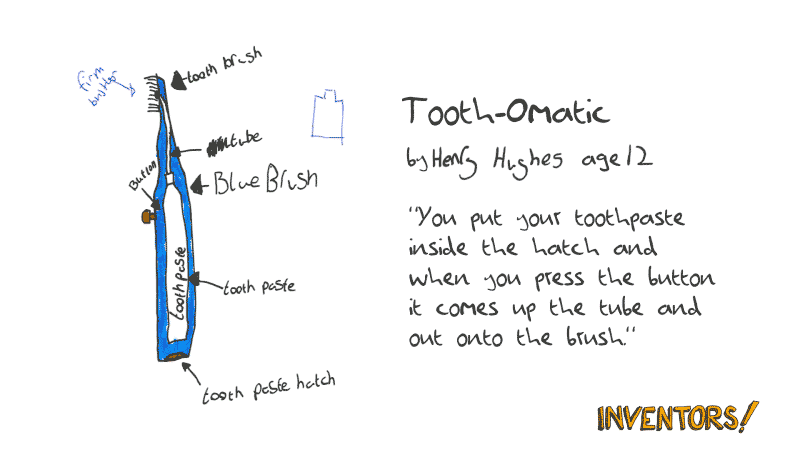 tooth brush
firm
tube
Button
Blue Brush
toothpaste
tooth paste
tooth paste hatch
Tooth-Omatic
by Henry Hughes age 12
"You put your toothpaste
inside the hatch and
when you press the button
it comes up the tube and
out onto the brush."
INVENTORS!